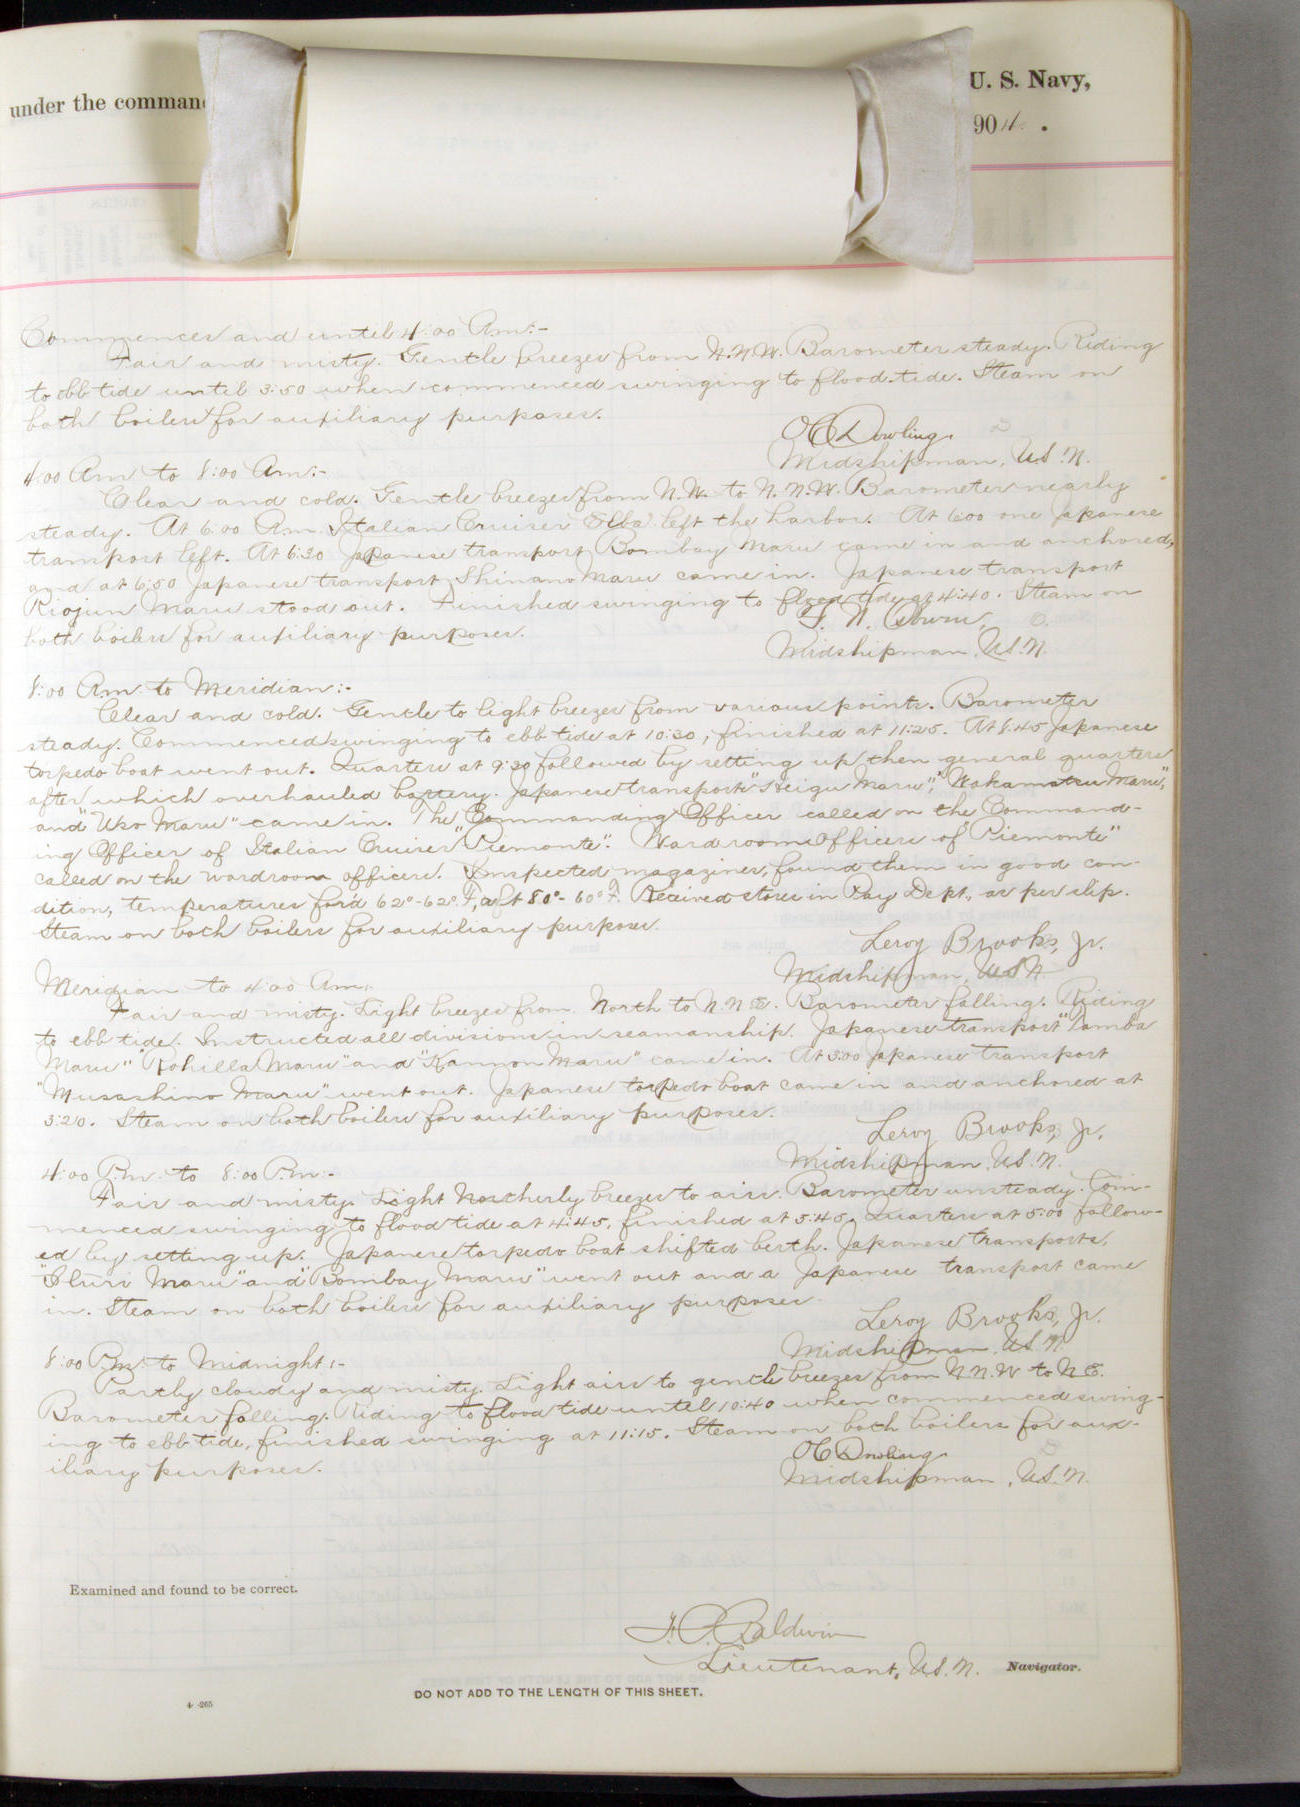 under the command
U. S. Navy,
904.
Commences and until 4:00 Am:-
Fair and misty. Gentle breezes from N.N.W. Barometer steady. Riding
to ebb tide until 3:50 when commenced swinging to flood tide. Steam on
both boilers for auxiliary purposes.
OC Dowling.
Midshipman, U.S.N.
4:00 Am to 8:00 Am:-
Clear and cold. Gentle breezes from N.W. to N.N.W. Barometer nearly
steady. At 6:00 Am. Italian Cruiser Elba left the harbor. At 6:00 one Japanese
transport left. At 6:30 Japanese transport Bombay Maru came in and anchored,
and at 6:50 Japanese transport Shinano Maru came in. Japanese transport
Riojun Maru stood out. Finished swinging to flood tide at 4:40. Steam on
both boilers for auxiliary purposes.
Midshipman, U.S.N.
8:00 Am. to Meridian:-
Clear and cold. Gentle to light breezes from various points. Barometer
steady. Commenced swinging to ebb tide at 10:30; finished at 11:25. At 8:45 Japanese
torpedo boat went out. Quarters at 9:30 followed by setting up then general quarters
after which overhauled battery. Japanese transports "Heigu Maru", "Wakamatsu Maru",
and "Uso Maru" came in. The Commanding Officer called on the Command-
ing Officer of Italian Cruiser "Piemonte". Wardroom Officers of Piemonte"
called on the wardroom officers. Inspected magazines, found them in good con-
dition, temperatures for'd 62°-62° F, aft 80°-60° F. Received stores in Pay Dept., as per slip.
Steam on both boilers for auxiliary purposes.
Leroy Brooks, Jr.
Midshipman, U.S.N
Meridian to 4:00 Am.
Fair and misty. Light breezes from North to N.N.E. Barometer falling. Riding
to ebb tide. Instructed all divisions in seamanship. Japanese transport "Tamba
Maru" "Rohilla Maru" and "Kannon Maru" came in. At 3:00 Japanese transport
"Musashino Maru" went out. Japanese torpedo boat came in and anchored at
3:20. Steam on both boilers for auxiliary purposes.
Leroy Brooks, Jr.
Midshipman, U.S.N.
4:00 P.m. to 8:00 P.m:-
Fair and misty. Light Northerly breezes to airs. Barometer unsteady. Com-
menced swinging to flood tide at 4:45, finished at 5:45. Quarters at 5:00 follow-
ed by setting up. Japanese torpedo boat shifted berth. Japanese transports,
Maru" and "Bombay Maru" went out and a Japanese transport came
in. Steam on both boilers for auxiliary purposes.
Leroy Brooks, Jr.
Midshipman, U.S.N.
8:00 P.m. to Midnight:-
Partly cloudy and misty. Light airs to gentle breezes from N.N.W to N.E.
Barometer falling. Riding to flood tide until 10:40 when commenced swing-
ing to ebb tide, finished swinging at 11:15. Steam on both boilers for aux-
iliary purposes.
OC Dowling
Midshipman, U.S.N.
Examined and found to be correct.
Baldwin
Lieutenant, U.S.N. Navigator.
DO NOT ADD TO THE LENGTH OF THIS SHEET.
4-265